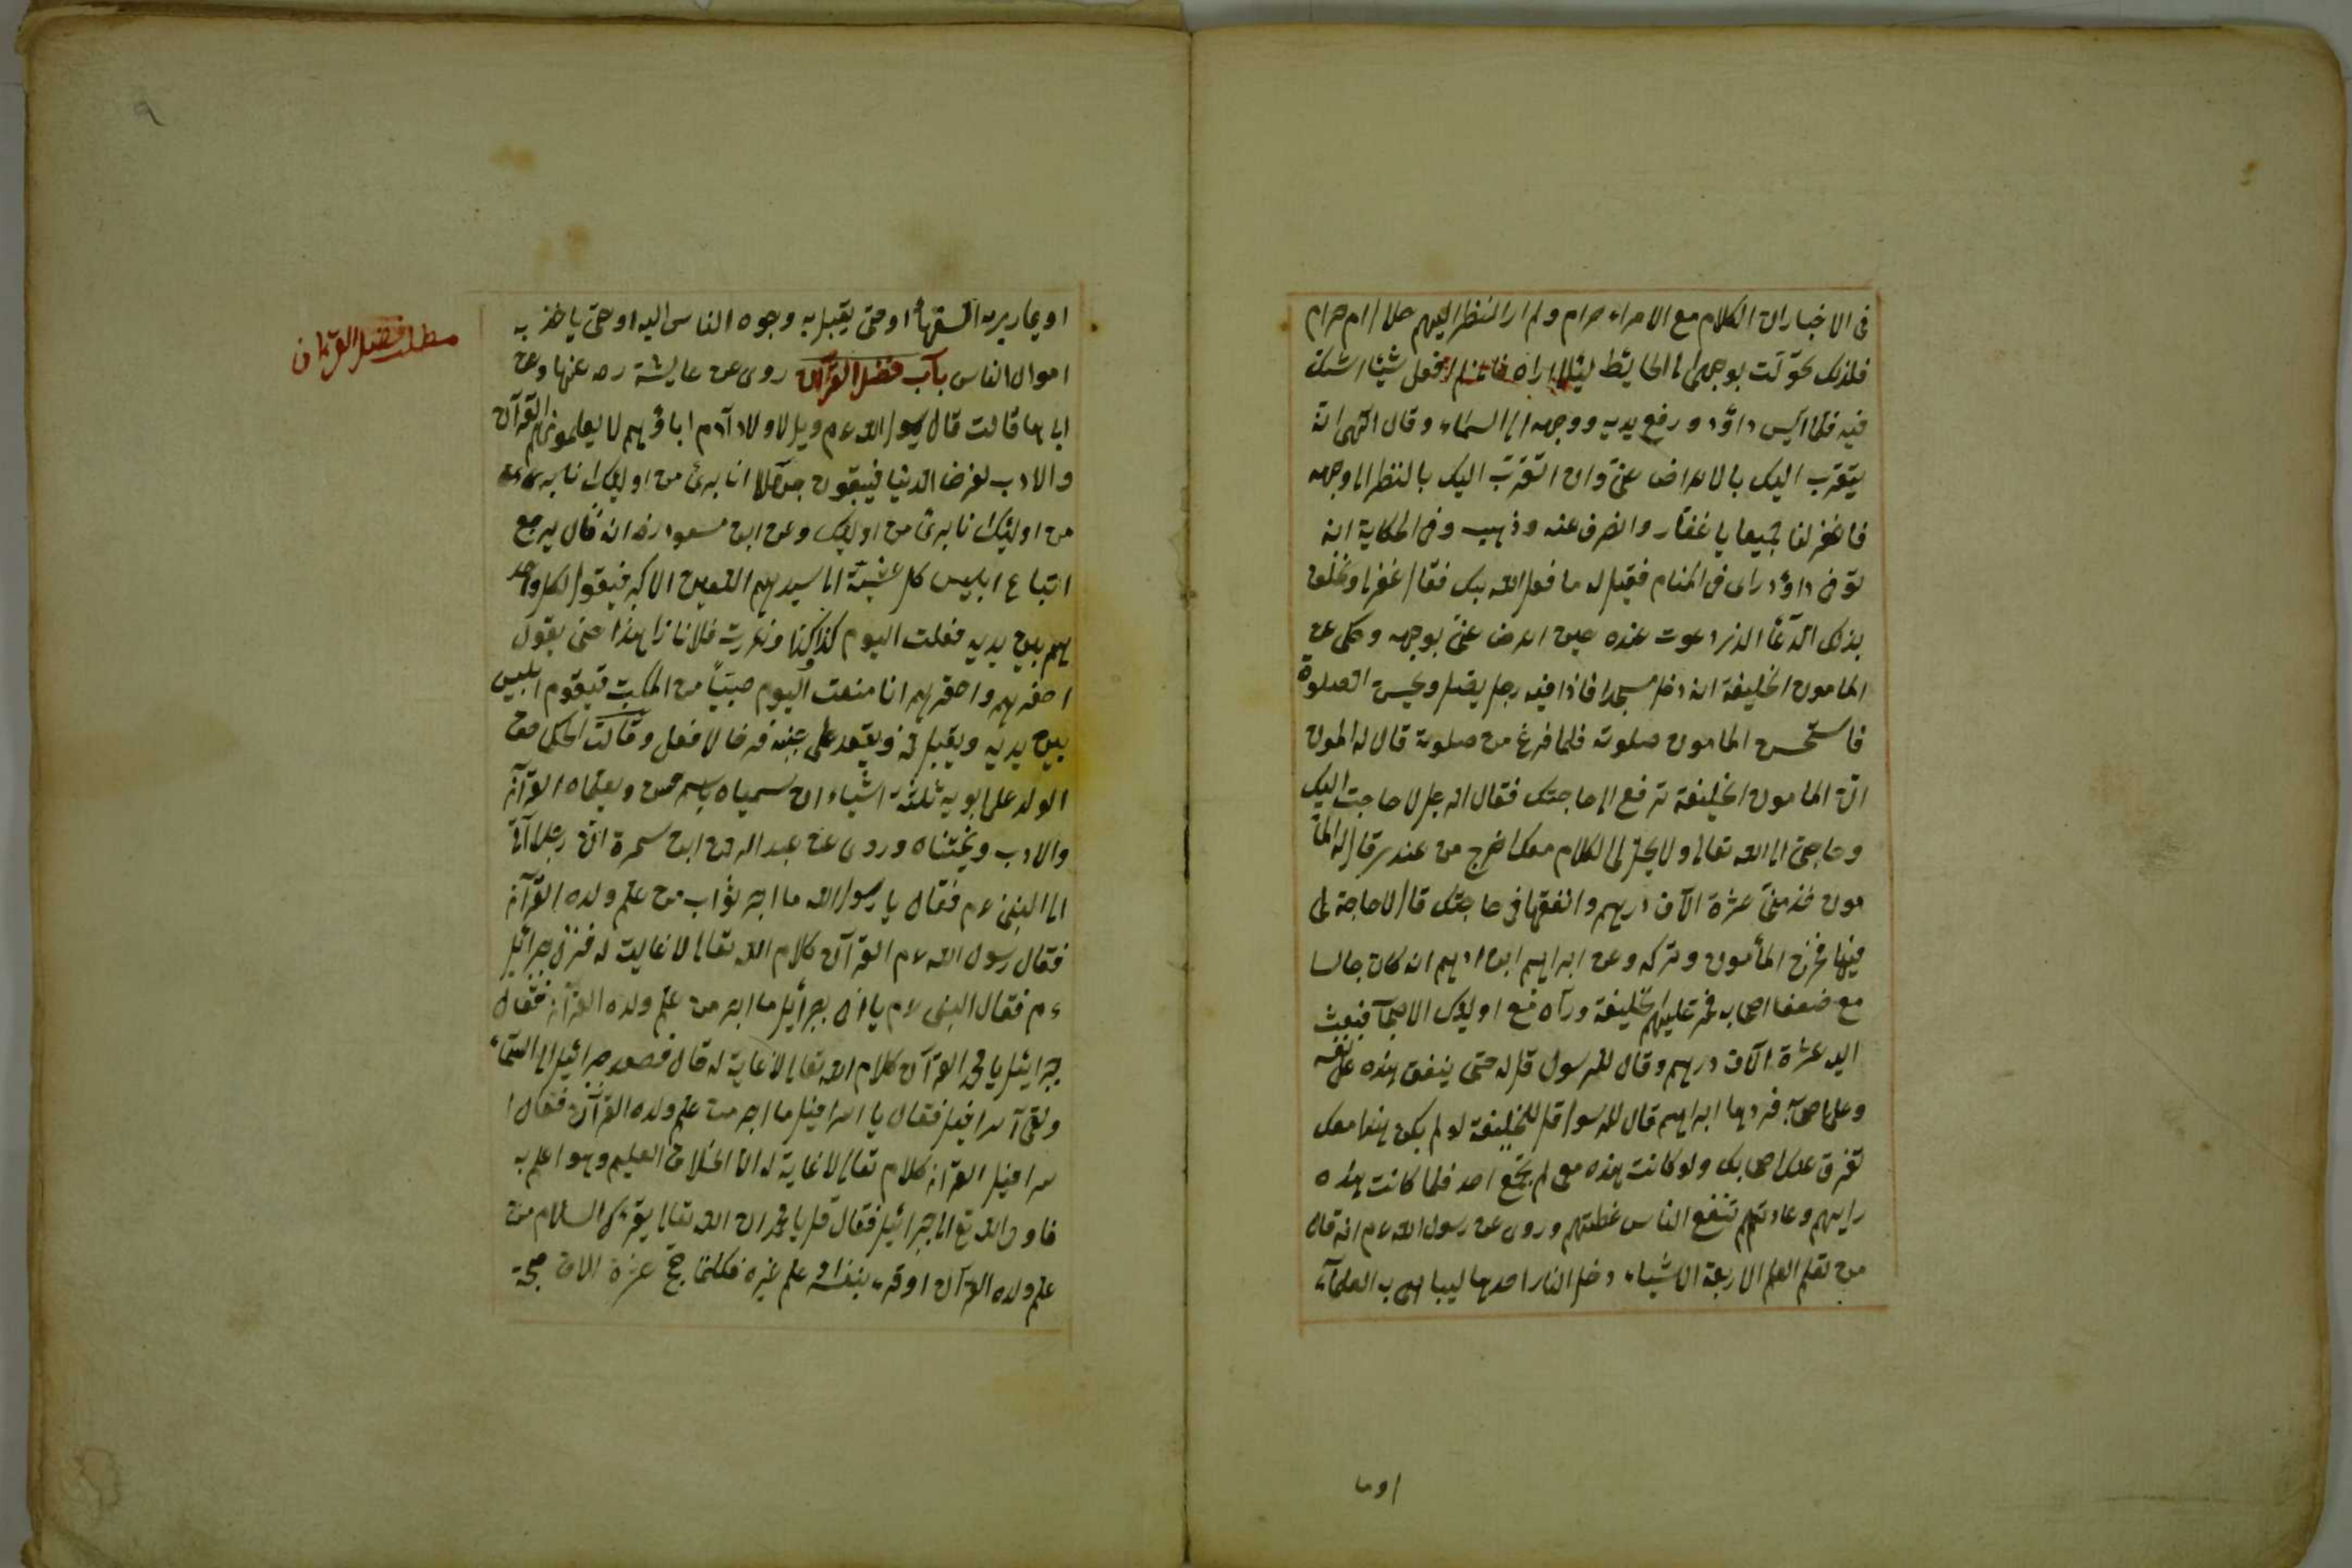 فى الاخبار ان الكلام مع الامراء حرام ولم ار النظر اليهم حلال ام حرام
فلذلك تحوّلت بوجهى الى الحايط ليلا اراه فانى لم افعل شيئا اشك
فيه فلما ايس داؤد ورفع يديه ووجهه الى السماء وقال الهى انه
يتقرب اليك بالاعراض عنّى وان اتقرّب اليك بالنظر الى وجهه
فاغفر لنا جميعا يا غفّار وانصرف عنه وذهب وفى الحكاية انه
توفى داؤد راى فى المنام فقيل له ما فعل الله بك فقال غفر لى وخلّق
بذلك الدّعا الذى دعوت عنده حين اعرض عنّى بوجهه وحكى عن
المامون الخليفة انه دخل مسجدا فاذا فيه رجل يصلى ويحسن الصلوة
فاستحسن المامون صلوته فلما فرغ من صلوته قال له المون
انّ المامون الخليفة ترفع الى حاجتك فقال الرجل لا حاجت اليك
وحاجتى الى الله تعالى ولا يحل لى الكلام معك اخرج من عندى قال له الما
مون خذ منّى عشرة الآف درهم وانفقها فى حاجتك قال لا حاجة لى
فيها فخرج المأمون وتركه وعن ابراهيم ابن ادهم انه كان جالسا
مع ضعفا اصحابه فمر عليهم الخليفة ورآه مع اوليك الاصحآ فبعث
اليه عشرة آلاف درهم وقال للرسول قل له حتى ينفق هذه على نفسه
وعلى اصحابه فردها ابراهيم قال للرسول قل للخليفة لو لم يكن هذا معك
تفرق عنك اصحابك ولو كانت هذه معى لم يجتمع احد فلما كانت هذه
رايهم وعادتهم تنفع الناس غلطتهم وروى عن رسول الله عم انه قال
من تعلم العلم الاربعة الاشياء دخل النار احدها ليباهى به العلمآء
اوما
او يمارى به السّفهآء او حتى يقبل به وجوه الناس اليه او حتى ياخذ به
اموال الناس بآب فضل القرآن روى عن عايشة رضه عنها وعن
ابيها قالت قال رسول الله عم ويل لاولاد آدم اباؤهم لا يعلمونهم القرآن
والادب لغرض الدنيا فيبقون جهلا انا برئ من اوليك انا برئ
من اوليك انا برئ من اوليك وعن ابن مسعود رضه انه قال يرجع
اتباع ابليس كل عشيّة الى سيدهم اللعين الاكبر فيقول كل واحد
لهم بين يديه فعلت اليوم كذا وكذا وغررت فلانا زاهدا حتى يقول
اصغرهم واحقرهم انا منعت اليوم صبيّاً من المكتب فيقوم ابليس
بين يديه ويقبل فى ويقعد على جنبه فرحا لا فعل وقالت الحكما حق
الولد على ابويه ثلثة اشياء ان سمياه باسم حسن ويعلماه القرآن
والادب ويختناه وروى عن عبد الرحمن ابن سمرة انّ رجلا آتى
الى النبى عم فقال يا رسول الله ما اجر ثواب من علم ولده القرآن
فقال رسول الله عم القرآن كلام الله تعالى لا غايت له فنزل جبرائيل
عم فقال النبى عم يا اخى جبرأيل ما اجر من علم ولده القرآن فقال
جبرايل يا محمد القرآن كلام الله تعالى لا غاية له قال فصعد جبرائيل الى السمآء
ولقى آسرافيل فقال يا اسرافيل ما اجر من علم ولده القرآن فقال ا
سرافيل القرآن كلام تعالى لا غاية له انا الخلاق العليم وهو اعلم به
فاوحى الله تع الى جبرائيل فقال قل يا محمد ان الله تعالى يقريك السلام من
علم ولده القرآن او قرء بنفسه او علم غيره فكانما حج عشرة الاف حجة
مطلب فضل القرآن
٩